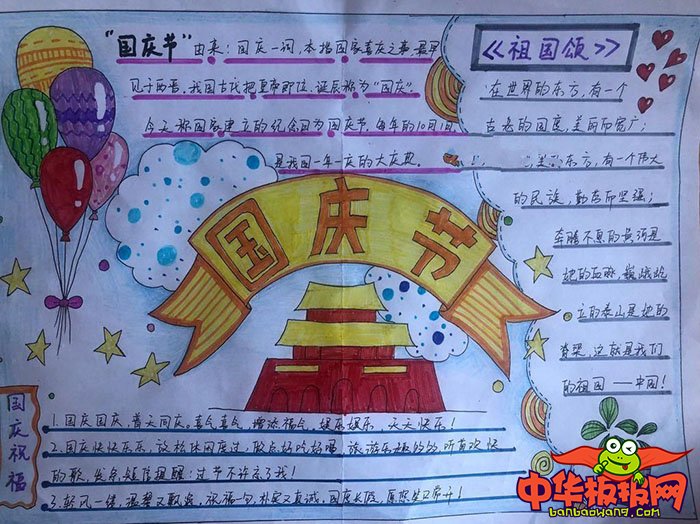 “国庆节”由来：国庆一词，本指国家喜庆之事。最早
见于西晋。我国古代把皇帝即位、诞辰称为“国庆”。
今天称国家建立的纪念日为国庆节，每年的10月1日
是我国一年一度的大庆典。
《祖国颂》
在世界的东方，有一个
古老的国度，美丽而宽广；
东方，有一个伟大
的民族，勤劳而坚强；
奔腾不息的黄河是
她的血脉，巍峨屹
立的泰山是她的
脊梁，这就是我们
的祖国——中国！
国庆节
国庆祝福
1.国庆国庆，普天同庆。喜气喜气，增添福气，娱乐娱乐，天天快乐！
2.国庆快快乐乐，放松休闲度过，吃点好吃好喝，旅游乐趣多多，听首欢快
的歌，发条短信提醒：过节不许忘了我！
3.轻风一缕，温馨又飘逸，祝福一句，朴实又真诚，国庆长假，愿您
中华板报网
banbaowang.com